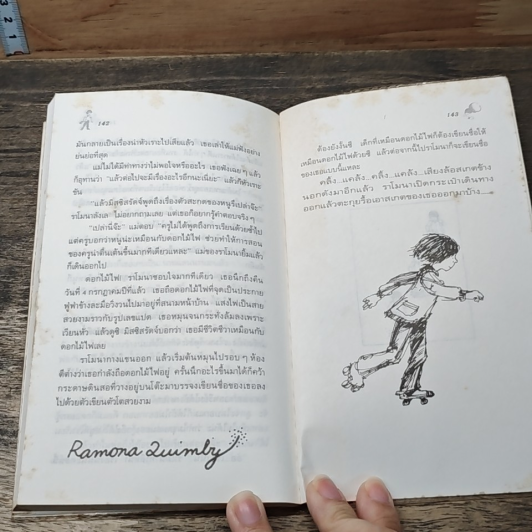 142
มันกลายเป็นเรื่องน่าหัวเราะไปเสียแล้ว เธอเล่าให้แม่ฟังอย่าง
ย่นย่อที่สุด
แม่ไม่ได้มีท่าทางว่าไม่พอใจหรืออะไร เธอฟังเฉย ๆ แล้ว
ก็ถามว่า "แล้วต่อไปจะมีเรื่องอะไรอีกนะเนี่ย" แล้วก็หัวเราะ
ขัน
"แล้วมิสซิสรัดจ์พูดถึงเรื่องตัวสะกดของหนูรึเปล่าจ๊ะ"
ราโมนาลังเล ไม่อยากถามเลย แต่เธอก็อยากรู้คำตอบจริง ๆ
"เปล่านี่จ๊ะ" แม่ตอบ "ครูไม่ได้พูดถึงการเรียนด้วยซ้ำไป
แต่ครูบอกว่าหนูน่ะเหมือนกับดอกไม้ไฟ ช่วยทำให้การสอน
ของครูน่าตื่นเต้นขึ้นมากทีเดียวแหละ" แม่ของราโมนายิ้มแล้ว
ก็เดินออกไป
ดอกไม้ไฟ! ราโมนาชอบใจมากทีเดียว เธอนึกถึงคืน
วันที่ ๔ กรกฎาคมปีที่แล้ว เธอถือดอกไม้ไฟที่จุดเป็นประกาย
ฟู่ฟ่าข้างละมือวิ่งวนไปมาอยู่ที่สนามหน้าบ้าน แสงไฟเป็นสาย
สวยงามราวกับรูปเลขแปด เธอหมุนจนกระทั่งล้มลงเพราะ
เวียนหัว แล้วดูซิ มิสซิสรัดจ์บอกว่า เธอมีชีวิตชีวาเหมือนกับ
ดอกไม้ไฟเลย
ราโมนากางแขนออก แล้วเริ่มต้นหมุนไปรอบ ๆ ห้อง
ตีต่างว่าเธอกำลังถือดอกไม้ไฟอยู่ ครั้นนึกอะไรขึ้นมาได้ก็คว้า
กระดาษดินสอที่วางอยู่บนโต๊ะมาบรรจงเขียนชื่อของเธอลง
ไปด้วยตัวเขียนตัวโตสวยงาม
Ramona Quimby
143
ต้องยังงั้นซิ เด็กที่เหมือนดอกไม้ไฟก็ต้องเขียนชื่อให้
เหมือนดอกไม้ไฟด้วยซิ แล้วต่อจากนี้ไปราโมนาก็จะเขียนชื่อ
ของเธอแบบนี้แหละ
คลิ้ง...แคล้ง...คลิ้ง...แคล้ง...เสียงล้อสเกตข้าง
นอกดังมาอีกแล้ว ราโมนาเปิดกระเป๋าเดินทาง
ออกแล้วตะกุยรื้อเอาสเกตของเธอออกมาบ้าง...